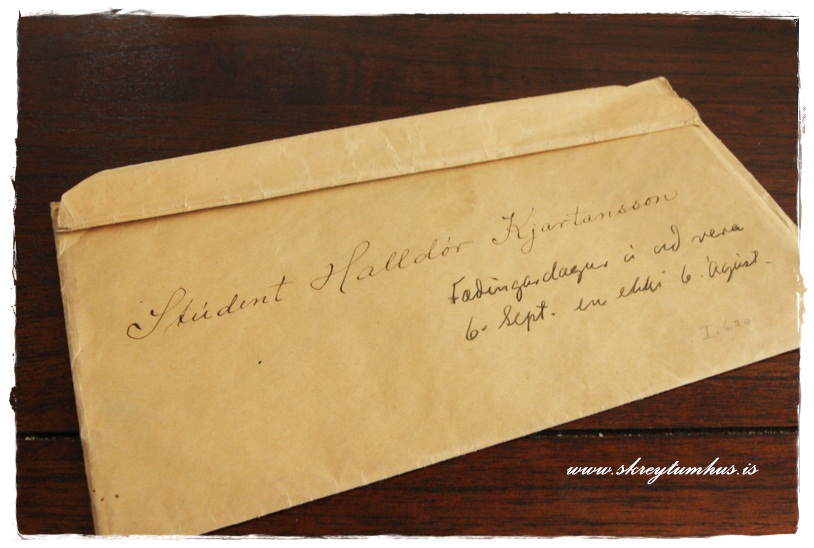 Stúdent Halldór Kjartansson
Fæðingardagur á að vera
6. Sept. en ekki 6. Ágúst.
www.skreytumhus.is